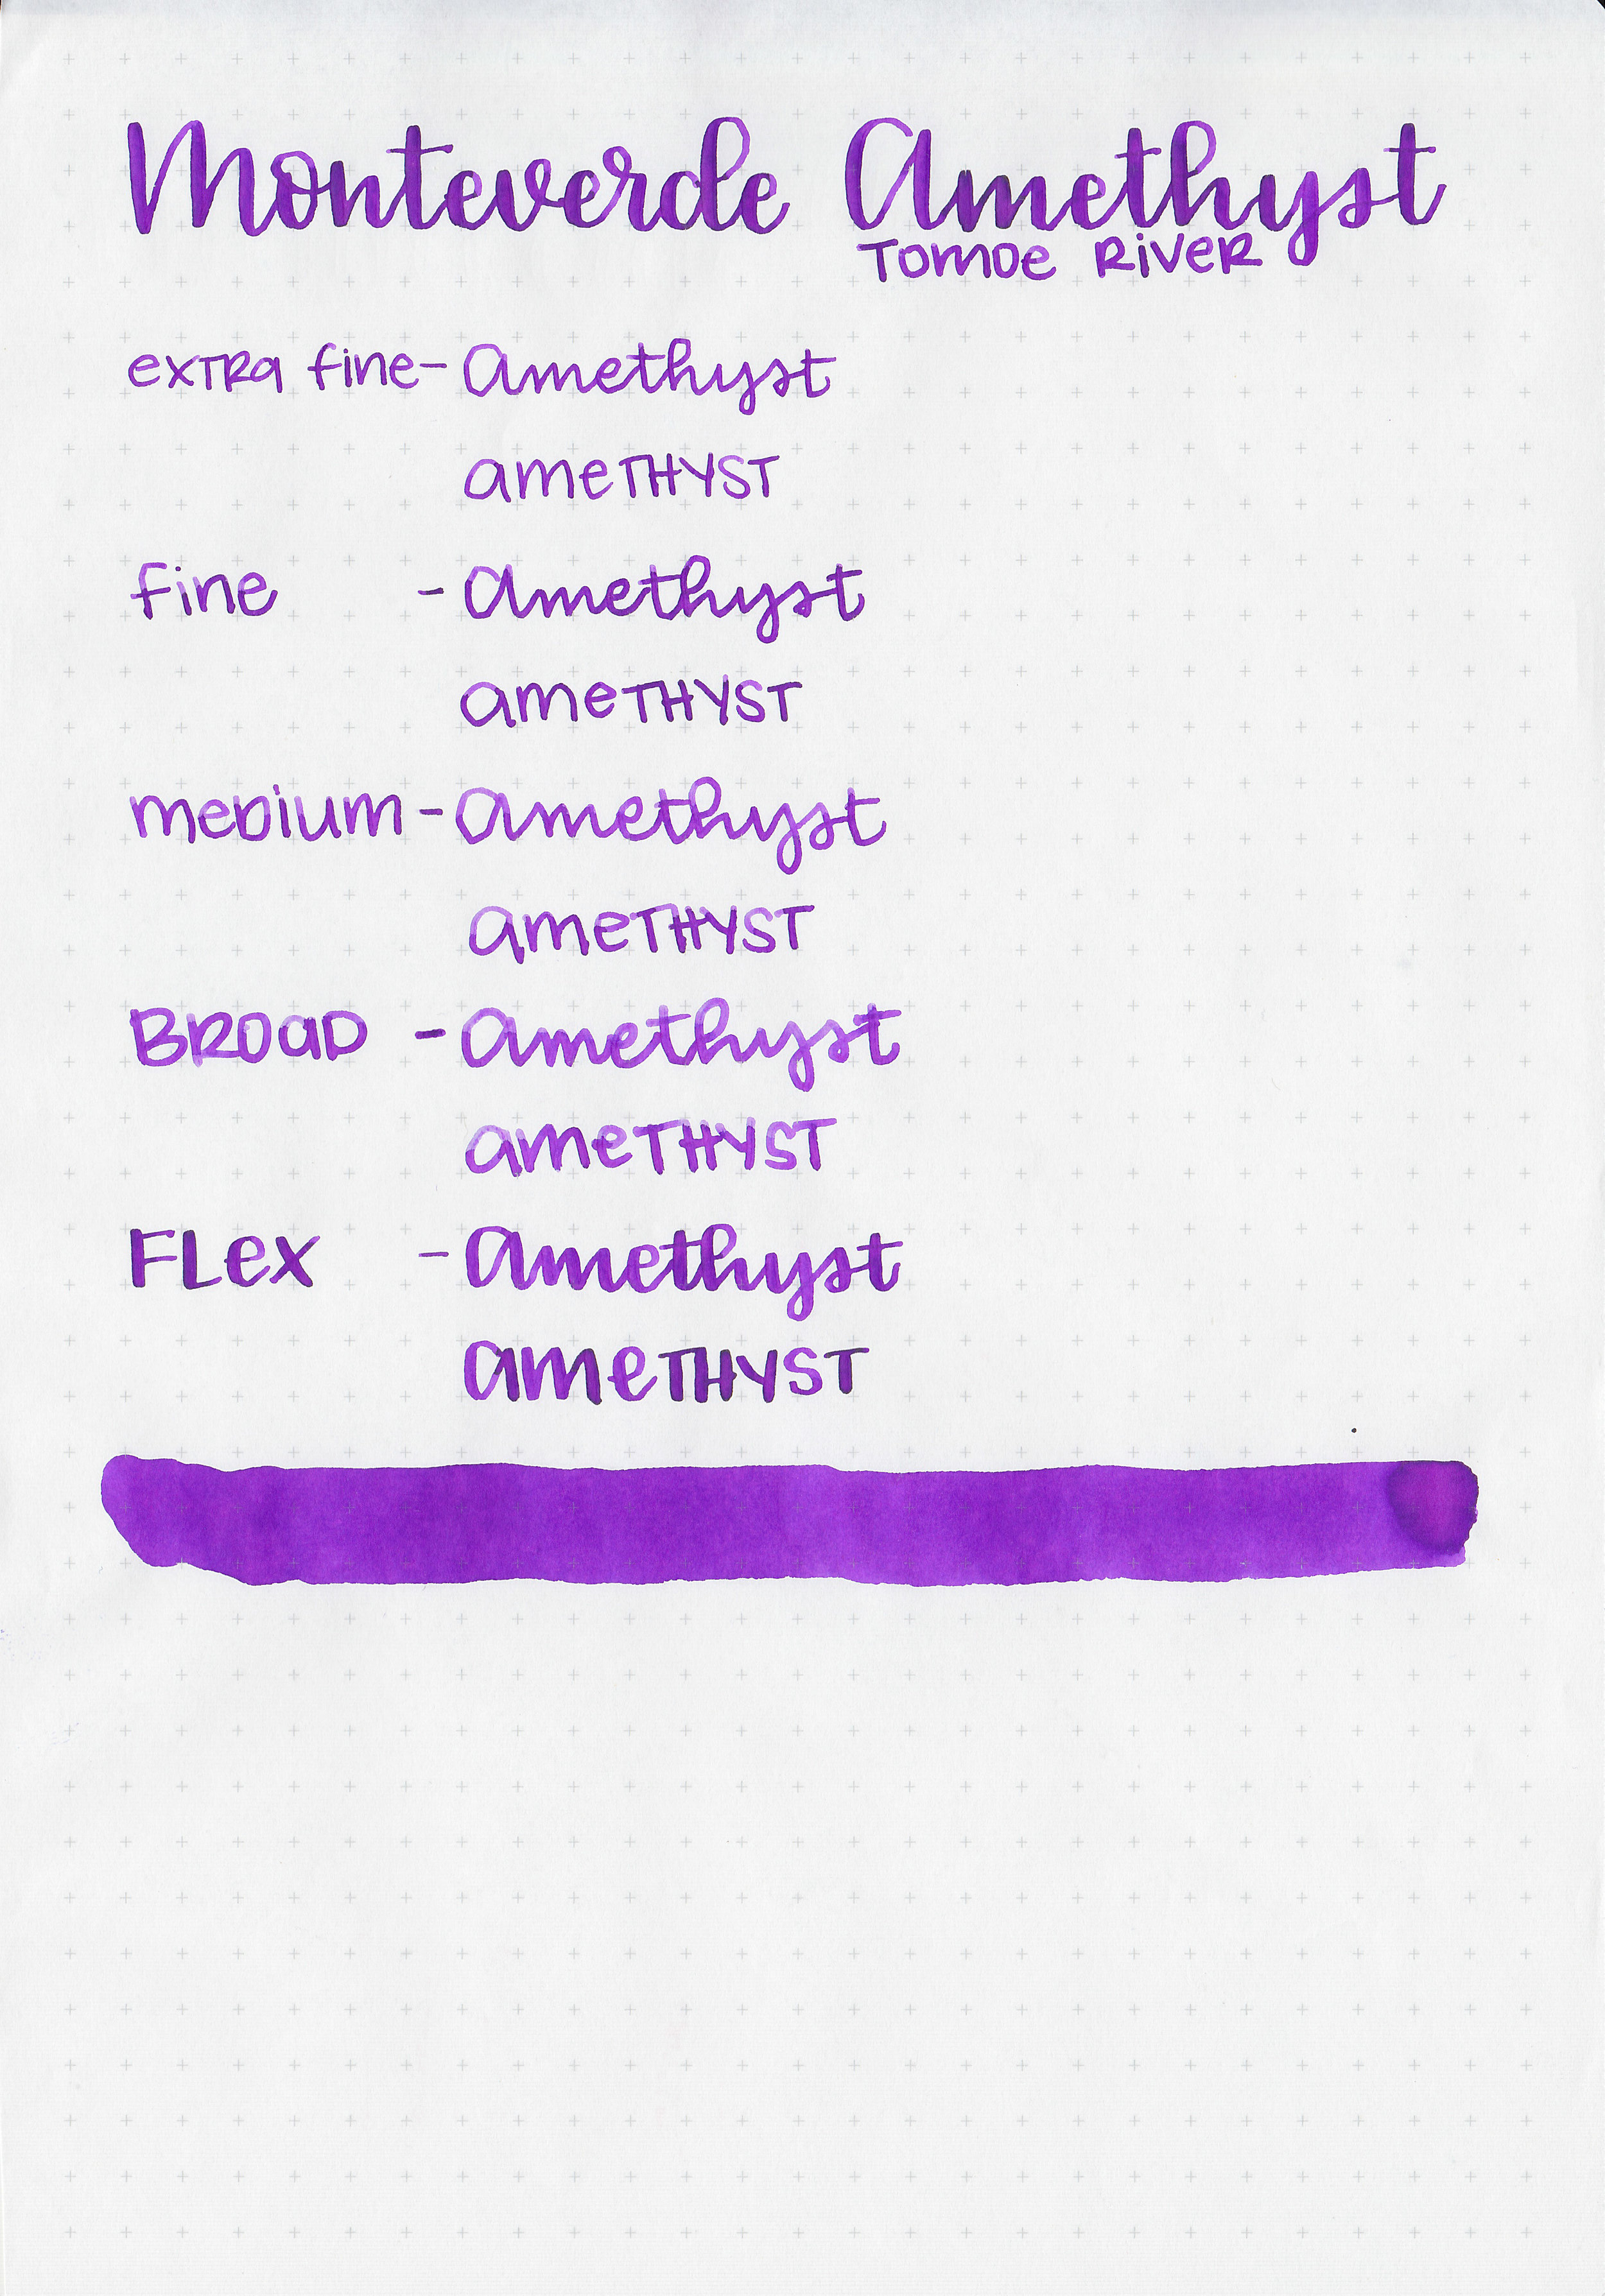 Monteverde Amethyst
Tomoe River
extra fine - Amethyst
ameTHYST
fine - Amethyst
ameTHYST
medium - Amethyst
ameTHYST
BROAD - Amethyst
ameTHYST
FLex - Amethyst
ameTHYST